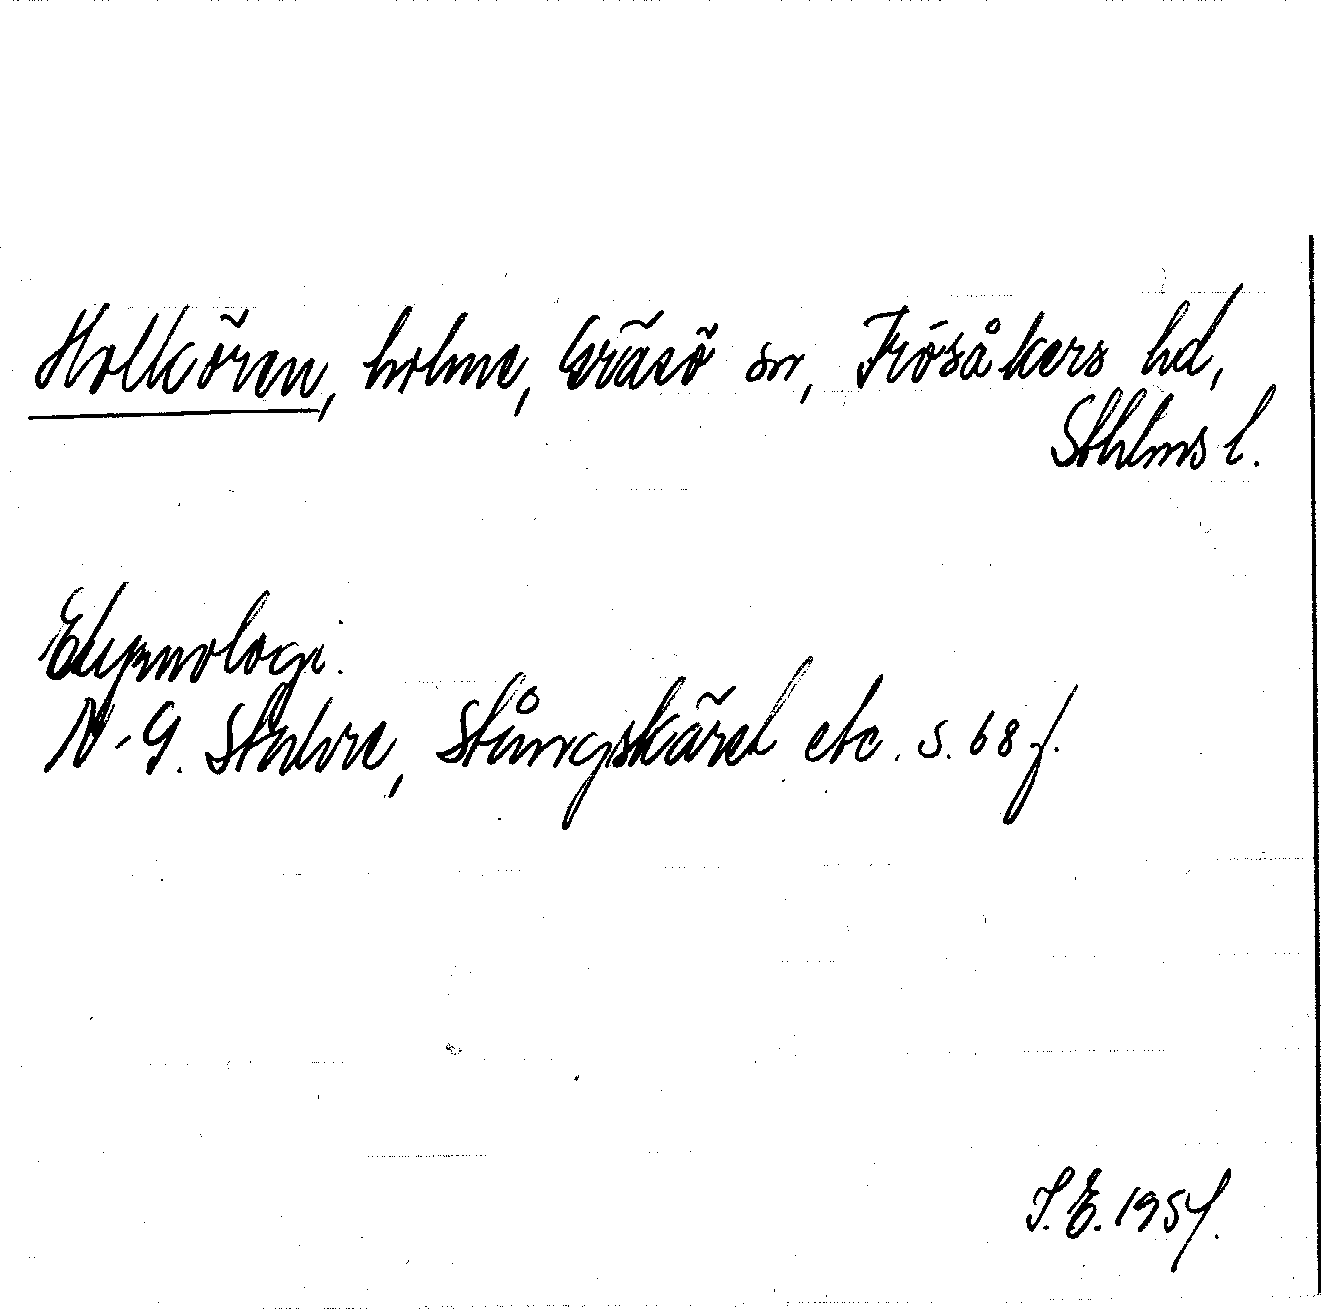 Hollkören, holme, Gräsö sn, Frösåkers hd,
Sthlms l.
Etymologi:
N.-G. Stahre, Stångskäret etc. s. 68 f.
S.E. 1957.